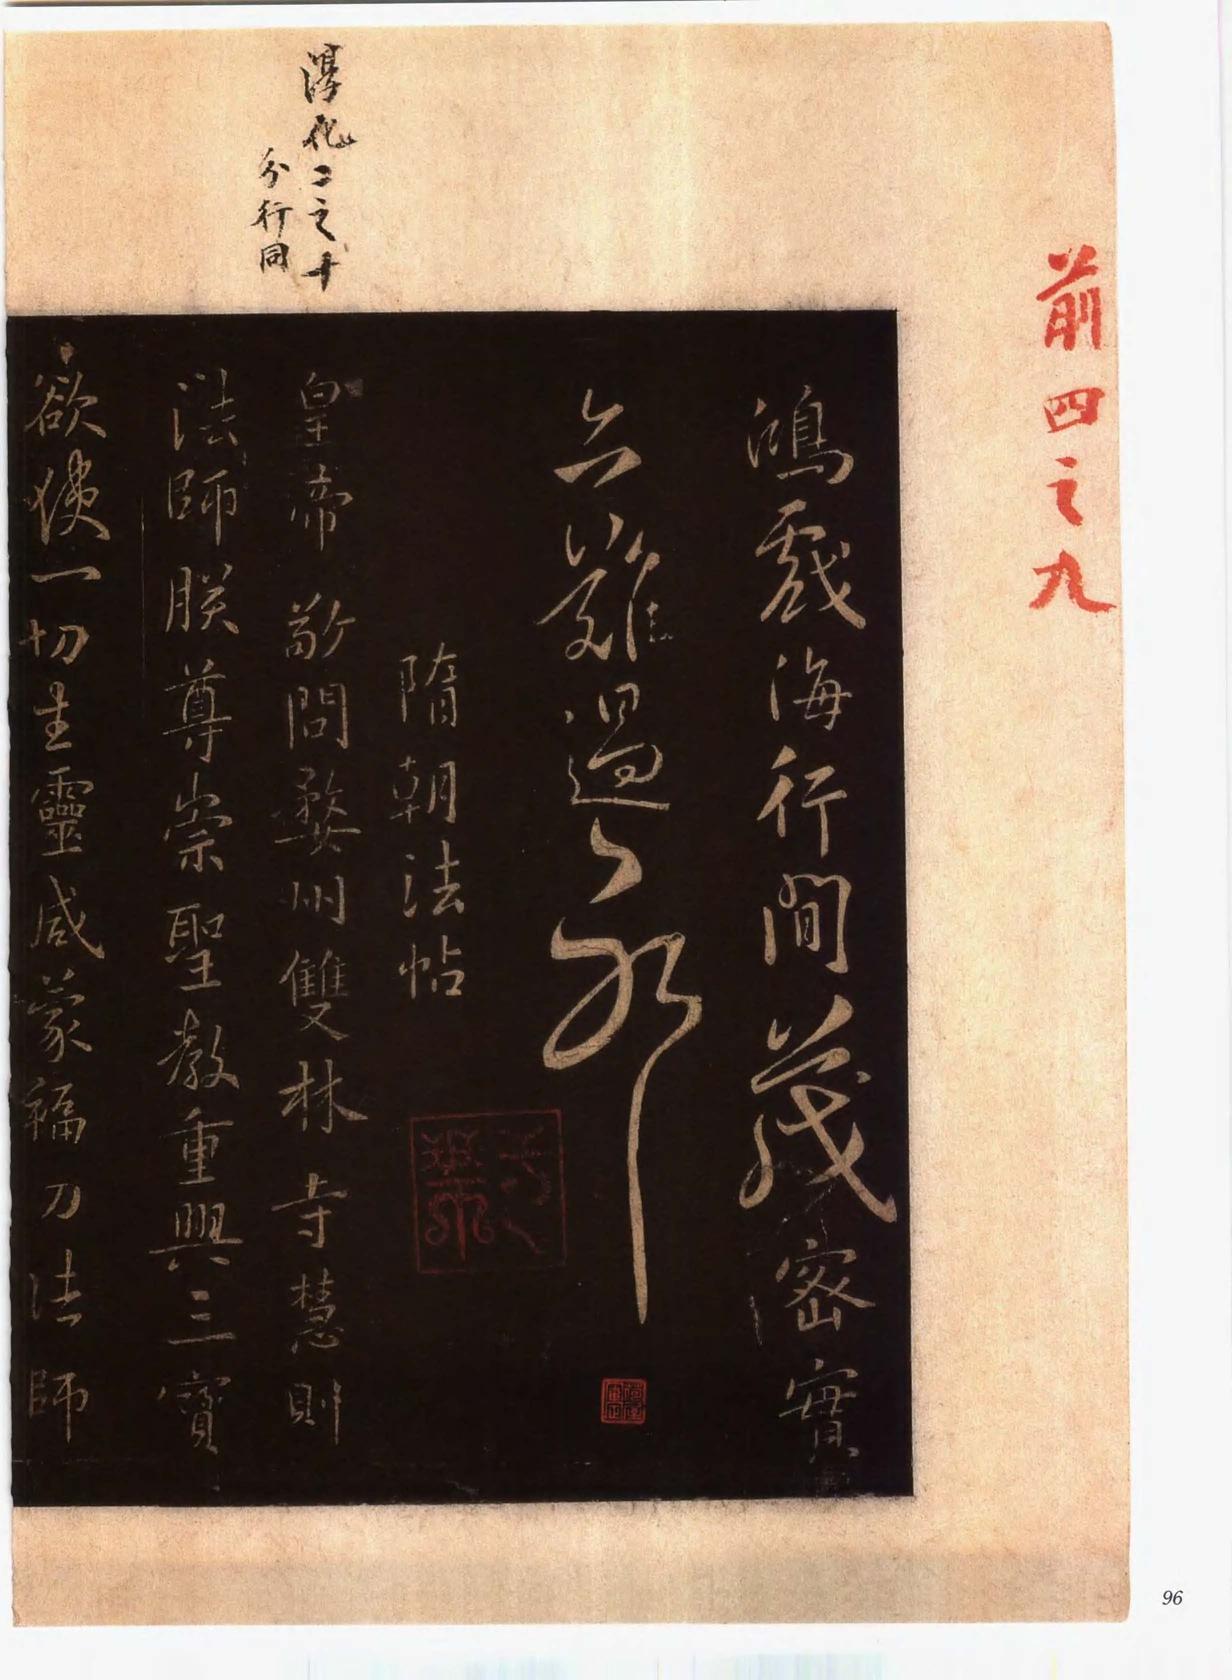 前四之九
淳化二之十
分行同
鴻戲海行間茂密實
亦難過
隋朝法帖
皇帝敬問婺州雙林寺慧則
法師朕尊崇聖教重興三寶
欲使一切生靈咸蒙福力法師
96